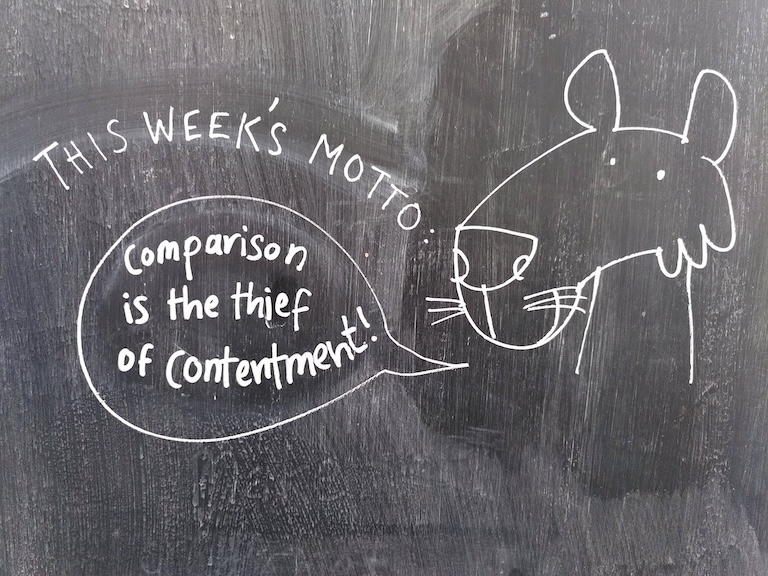 THIS WEEK'S MOTTO:
comparison
is the thief
of contentment!